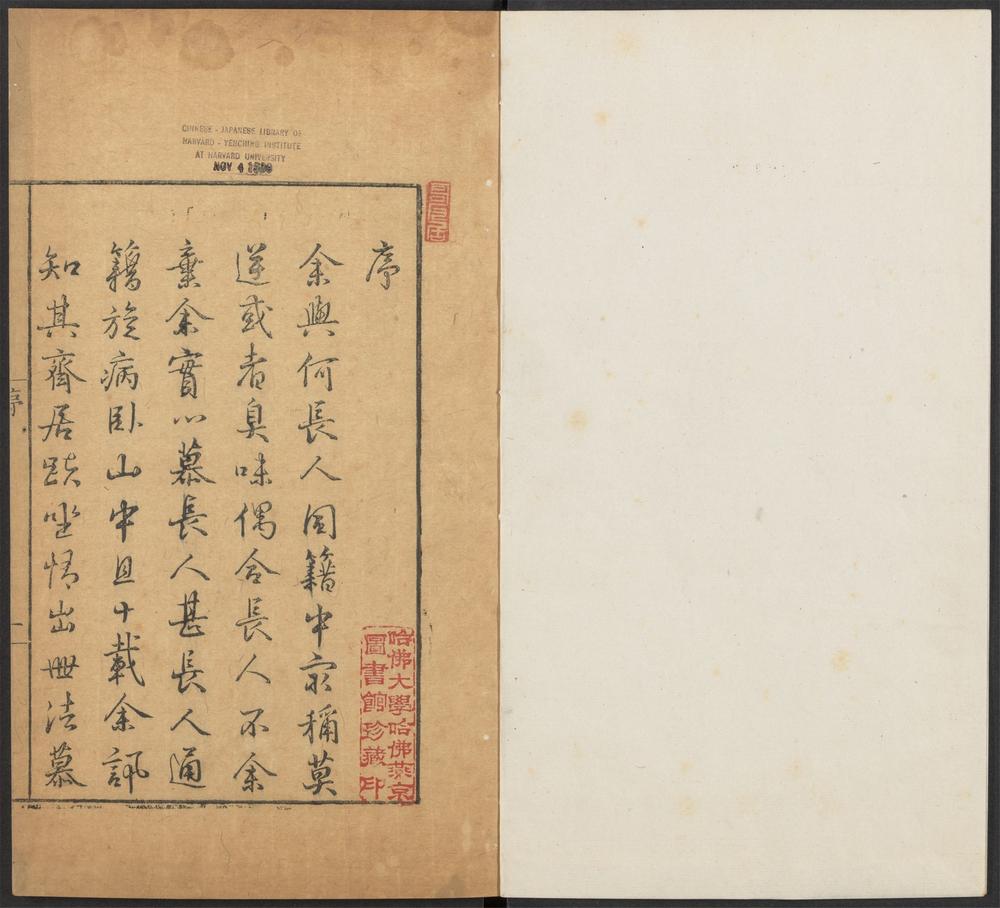 CHINESE - JAPANESE LIBRARY OF
HARVARD - YENCHING INSTITUTE
AT HARVARD UNIVERSITY
NOV 4
序
余與何長人同籍中最稱莫
逆或者臭味偶合長人不余
棄余實心慕長人甚長人通
籍旋病臥山中且十載余訊
知其齋居趺坐情出世法慕
哈佛大學哈佛燕京
圖書館珍藏印
序
一